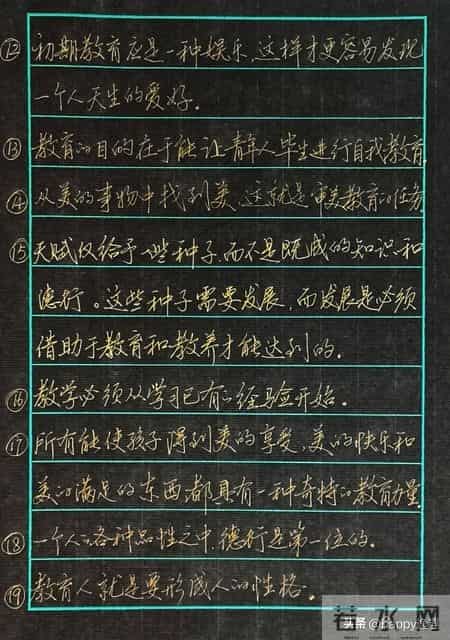 ⑫ 初期教育应是一种娱乐,这样才更容易发现
一个人天生的爱好。
⑬ 教育的目的在于能让青年人毕生进行自我教育
⑭ 从美的事物中找到美,这就是审美教育的任务
⑮ 天赋仅给予一些种子,而不是既成的知识和
德行。这些种子需要发展,而发展是必须
借助于教育和教养才能达到的。
⑯ 教学必须从学习已有的经验开始。
⑰ 所有能使孩子得到美的享受,美的快乐和
美的满足的东西,都具有一种奇特的教育力量
⑱ 一个人的各种品性之中,德行是第一位的。
⑲ 教育人就是要形成人的性格。
头条 @happy
若水网